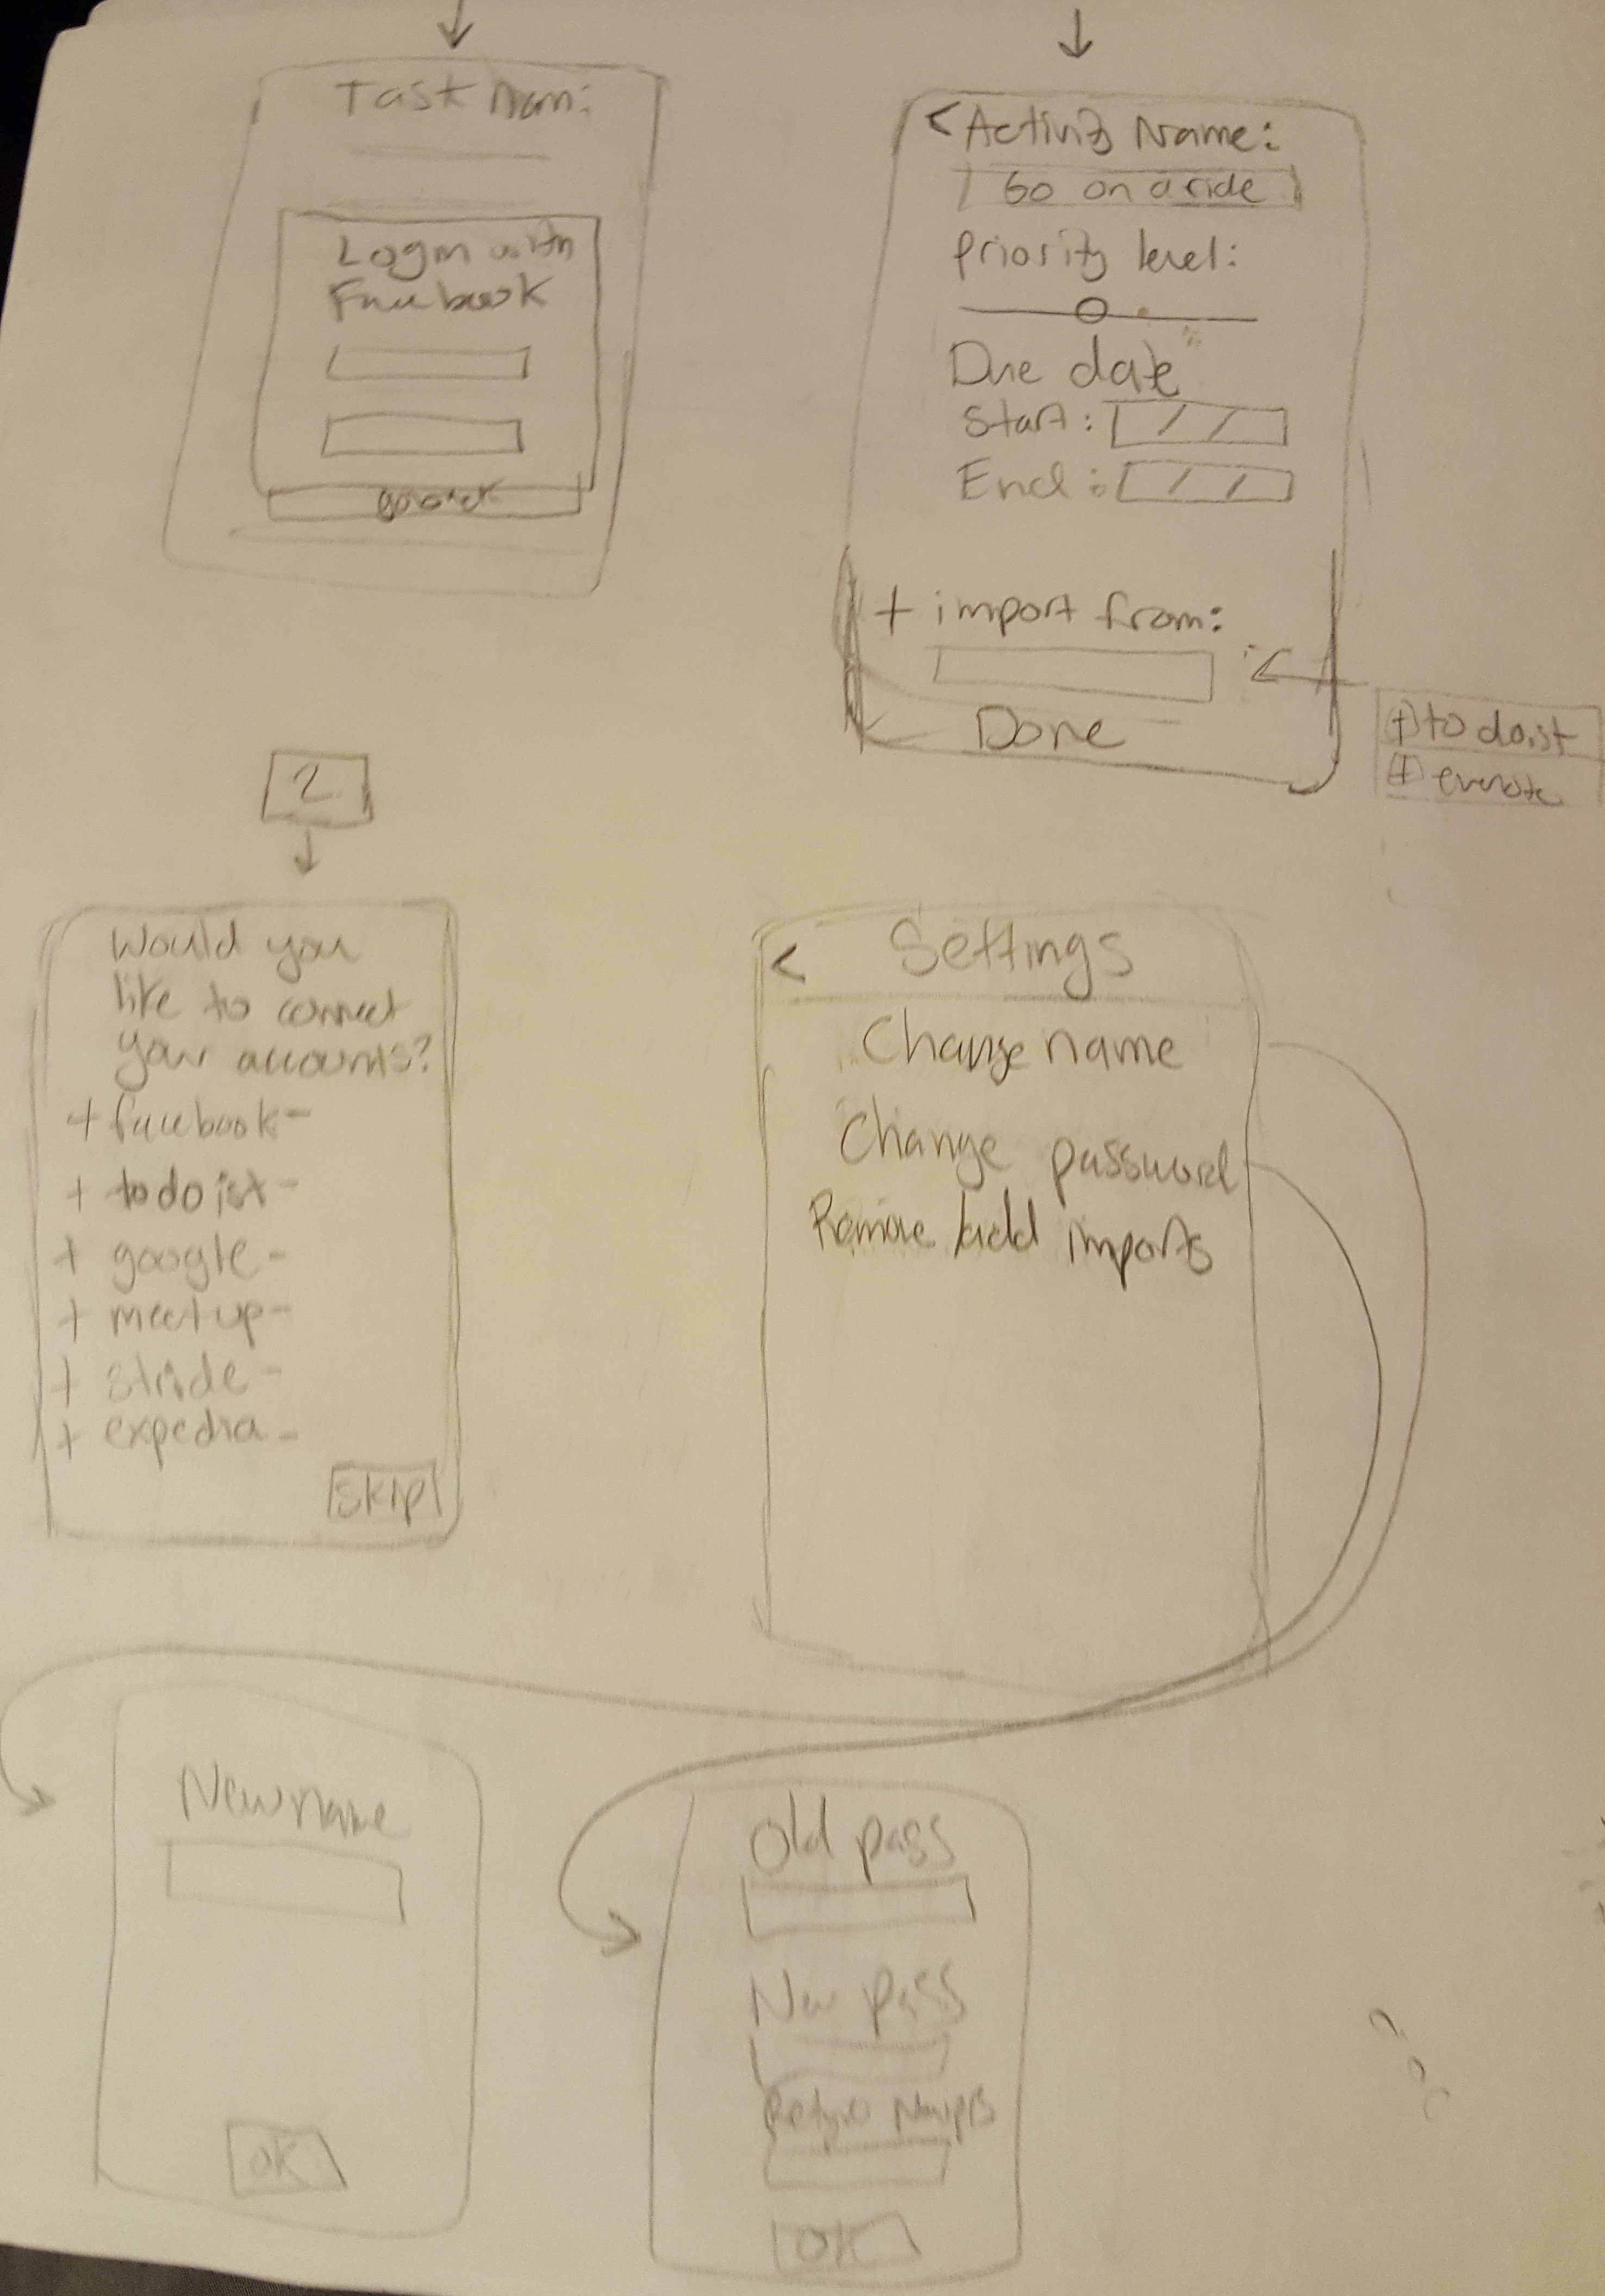 Task Nam:
Login with
Facebook
< Activity Name:
Go on a ride
Priority level:
Due date
Start: / /
End: / /
+ import from:
Done
+ todoist
+ evernote
2
Would you
like to connect
your accounts?
+ facebook -
+ todoist -
+ google -
+ meetup -
+ stride -
+ expedia -
SKIP
< Settings
Change name
Change password
Remove/add imports
New name
OK
Old pass
New pass
Retype New pass
OK